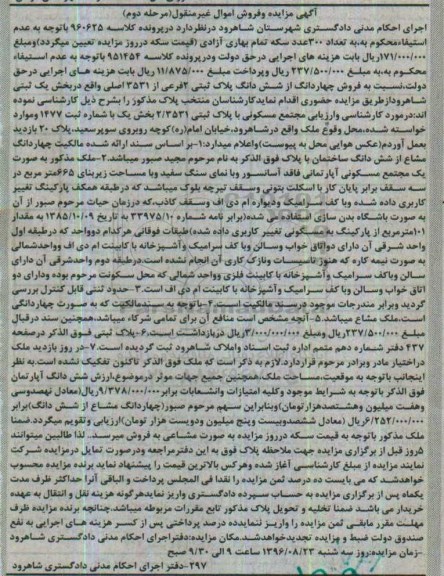 آگهی مزایده وفروش اموال غیرمنقول(مرحله دوم)
اجرای احکام مدنی دادگستری شهرستان شاهرود درنظردارد درپرونده کلاسه ۹۶۰۶۲۵ باتوجه به عدم
استیفاءمحکوم به،به تعداد ۳۰۰عدد سکه تمام بهاری آزادی (قیمت سکه درروز مزایده تعیین میگردد)ومبلغ
۱۷۱/۰۰۰/۰۰۰ریال بابت هزینه های اجرایی درحق دولت ودرپرونده کلاسه ۹۵۱۴۵۴ باتوجه به عدم استیفاء
محکوم به،به مبلغ ۲۳۷/۵۰۰/۰۰۰ ریال وپرداخت مبلغ ۱۱/۸۷۵/۰۰۰ ریال بابت هزینه های اجرایی درحق
دولت،نسبت به فروش چهاردانگ از شش دانگ پلاک ثبتی ۲فرعی از ۳۵۳۱ اصلی واقع دربخش یک ثبتی
شاهرودازطریق مزایده حضوری اقدام نمایدکارشناسان منتخب پلاک مذکور را بشرح ذیل کارشناسی نموده
اند:درمورد کارشناسی وارزیابی مجتمع مسکونی با پلاک ثبتی ۲/۳۵۳۱ بخش یک با شماره ثبت ۱۴۷۷ وموارد
خواسته شده،محل وقوع ملک واقع درشاهرود،خیابان امام(ره)کوچه روبروی سوپرسعید،پلاک ۲۰ بازدید
بعمل آوردم(عکس هوایی محل به پیوست)واعلام میدارد:۱-بر اساس سند ارائه شده مالکیت چهاردانگ
مشاع از شش دانگ ساختمان با پلاک فوق الذکر به نام مرحوم مجید صبور میباشد.۲-ملک مذکور به صورت
یک مجتمع مسکونی آپارتمانی فاقد آسانسور وبا نمای سنگ سفید وبا مساحت زیربنای ۶۶۵متر مربع در
سه سقف برابر پایان کار با اسکلت بتونی وسقف تیرچه بلوک میباشد که درطبقه همکف پارکینگ تغییر
کاربری داده شده وبا کف سرامیک ودیواره ام دی اف وسقف کاذب،که درزمان حیات مرحوم صبور از آن
به صورت باشگاه بدن سازی استفاده می شده(برابر نامه شماره ۳۳۹۷۵/۱۰ به تاریخ ۱۳۸۵/۱۰/۰۹ به مقدار
۱۰۱مترمربع از پارکینگ به مسکونی تغییر کاربری داده شده)طبقات فوقانی هرکدام دوواحد که درطبقه اول
واحد شرقی آن دارای دواتاق خواب وسالن وبا کف سرامیک وآشپزخانه با کابینت ام دی اف وواحدشمالی
به صورت نیمه کاره که هنوز تاسیسات ونازک کاری آن انجام نشده است.درطبقه دوم واحدشرقی آن دارای
سالن وباکف سرامیک وآشپزخانه با کابینت فلزی وواحد شمالی که محل سکونت مرحوم بوده ودارای دو
اتاق خواب وسالن وبا کف سرامیک وآشپزخانه با کابینت ام دی اف است.۳-حدود ثبتی قابل کنترل بررسی
گردید وبرابر مندرجات موجود درسند مالکیت است.۴-باتوجه به سندمالکیت که به صورت چهاردانگی
است،ملک مشاع میباشد.۵-آنچه مشخص است منافع آن برای تمامی شرکاء میباشد،همچنین سند درقبال
مبلغ ۲۳۷/۵۰۰/۰۰۰ریال ومبلغ ۳/۰۰۰/۰۰۰/۰۰۰ریال دربازداشت است.۶-پلاک ثبتی فوق الذکر درصفحه
۴۳۷ دفتر شماره دهم متمم اداره ثبت اسناد واملاک شاهرود ثبت گردیده است.۷-در روز بازدید ملک
دراختیار مادر وبرادر مرحوم قراردارد.لازم به ذکر است که ملک فوق الذکر تاکنون تفکیک نشده است.به نظر
اینجانب باتوجه به موقعیت،مساحت ملک،همچنین جمیع جهات موثر درموضوع،ارزش شش دانگ آپارتمان
فوق الذکر باتوجه به شرایط موجود وکلیه امتیازات وانشعابات برابر ۹/۳۷۸/۰۰۰/۰۰۰ریال(معادل نهصدوسی
وهفت میلیون وهشتصدهزارتومان)وبنابراین سهم مرحوم صبور(چهاردانگ مشاع از شش دانگ)برابر
۶/۲۵۲/۰۰۰/۰۰۰ریال (معادل ششصدوبیست وپنج میلیون ودویست هزار تومان)ارزیابی وتقویم میگردد.ضمنا
ملک مذکور باتوجه به قیمت سکه درروز مزایده به صورت مشاعی به فروش میرسد. لذا طالبین میتوانند
۵روز قبل از برگزاری مزایده جهت ملاحظه پلاک فوق به این دفترمراجعه ودرصورت تمایل درمزایده شرکت
نمایند مزایده از مبلغ کارشناسی آغاز شده وهرکس بالاترین قیمت را پیشنهاد نماید برنده مزایده محسوب
خواهدشد.که می بایست ده درصد ثمن مزایده را نقدا فی المجلس پرداخت والباقی آنرا حداکثر ظرف مدت
یکماه پس از برگزاری مزایده به حساب سپرده دادگستری واریز نمایدهرگونه هزینه نقل و انتقال به عهده
خریدار می باشد ضمنا تخلیه و تحویل پلاک مذکور تابع مقررات مربوطه میباشد.چنانچه برنده مزایده ظرف
مهلت مقرر مابقی ثمن مزایده را واریز ننمایدده درصد پرداختی پس از کسر هزینه های اجرایی به نفع
صندوق دولت ضبط و مزایده تجدیدخواهدشد.مکان مزایده:دفتراجرای احکام مدنی دادگستری شاهرود
-زمان مزایده:روز سه شنبه ۱۳۹۶/۰۸/۲۳ ساعت ۹ الی ۹/۳۰ صبح
۲۹۷-دفتر اجرای احکام مدنی دادگستری شاهرود